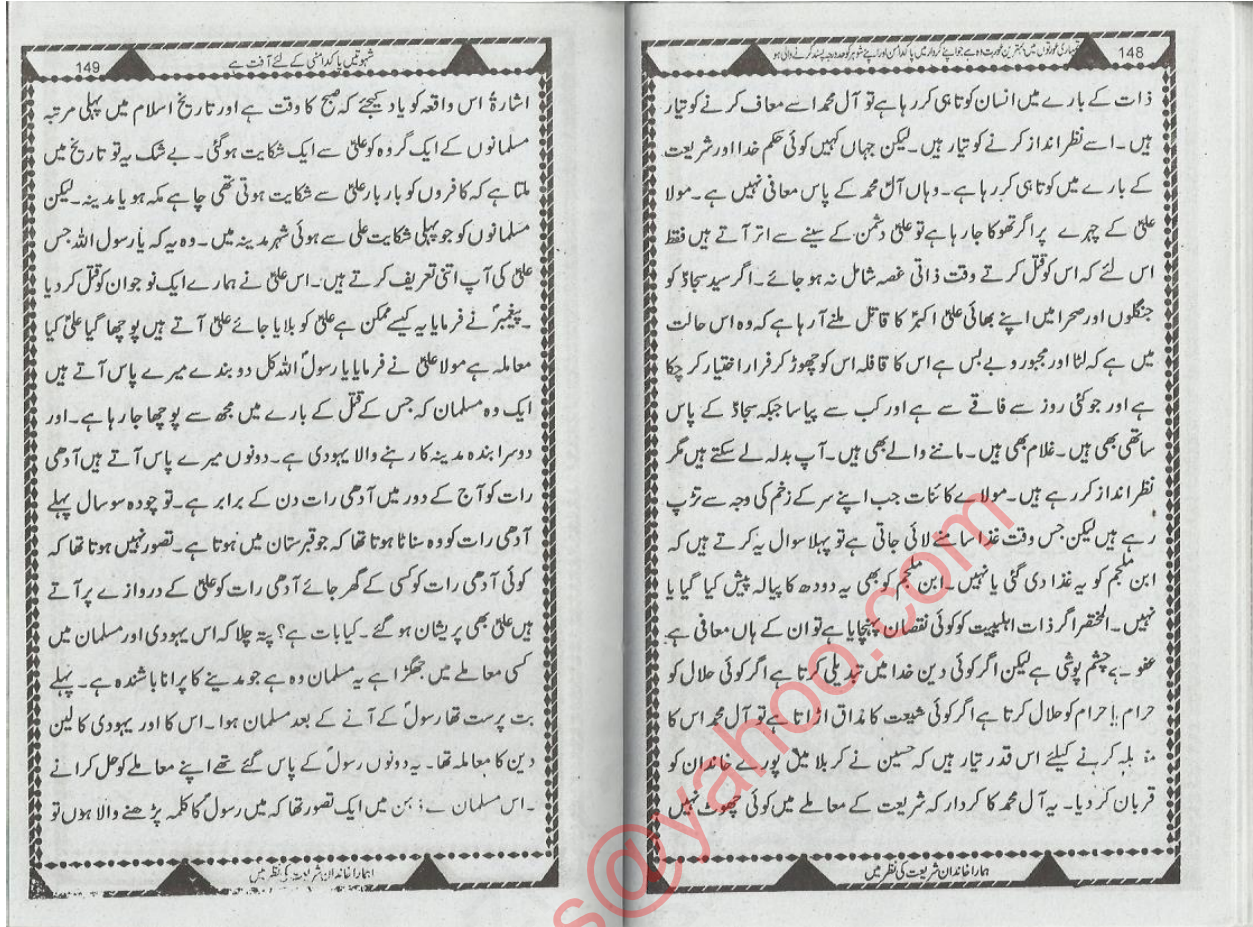 تمہاری عورتوں میں بہترین عورت وہ ہے جو اپنے کردار میں پاکدامن اور اپنے شوہر کو حد درجہ پسند کرنے والی ہو
148
ذات کے بارے میں انسان کوتاہی کر رہا ہے تو آل محمد اسے معاف کرنے کو تیار
ہیں۔ اسے نظر انداز کرنے کو تیار ہیں۔ لیکن جہاں کہیں کوئی حکم خدا اور شریعت
کے بارے میں کوتاہی کر رہا ہے۔ وہاں آل محمد کے پاس معافی نہیں ہے۔ مولا
علیؑ کے چہرے پر اگر تھوکا جا رہا ہے تو علیؑ دشمن کے سینے سے اتر آتے ہیں فقط
اس لئے کہ اس کو قتل کرتے وقت ذاتی غصہ شامل نہ ہو جائے۔ اگر سید سجادؑ کو
جنگلوں اور صحرا میں اپنے بھائی علی اکبرؑ کا قاتل ملنے آ رہا ہے کہ وہ اس حالت
میں ہے کہ لٹا اور مجبور و بے بس ہے اس کا قافلہ اس کو چھوڑ کر فرار اختیار کر چکا
ہے اور جو کئی روز سے فاقے سے ہے اور کب سے پیاسا جبکہ سجادؑ کے پاس
ساتھی بھی ہیں۔ غلام بھی ہیں۔ ماننے والے بھی ہیں۔ آپ بدلہ لے سکتے ہیں مگر
نظر انداز کر رہے ہیں۔ مولائے کائنات جب اپنے سر کے زخم کی وجہ سے تڑپ
رہے ہیں لیکن جس وقت غذا سامنے لائی جاتی ہے تو پہلا سوال یہ کرتے ہیں کہ
ابن ملجم کو یہ غذا دی گئی یا نہیں۔ ابن ملجم کو بھی یہ دودھ کا پیالہ پیش کیا گیا یا
نہیں۔ المختصر اگر ذات اہلبیت کو کوئی نقصان پہنچایا ہے تو ان کے ہاں معافی ہے
عفو ہے چشم پوشی ہے لیکن اگر کوئی دین خدا میں تبدیلی کرتا ہے اگر کوئی حلال کو
حرام یا حرام کو حلال کرتا ہے اگر کوئی شیعت کا مذاق اڑاتا ہے تو آل محمد اس کا
بلہ کرنے کیلئے اس قدر تیار ہیں کہ حسین نے کربلا میں پورے خاندان کو
قربان کر دیا۔ یہ آل محمد کا کردار کہ شریعت کے معاملے میں کوئی چھوٹ نہیں
ہمارا خاندان شریعت کی نظر میں
شہوتیں پاکدامنی کے لئے آفت ہے
149
اشارۃً اس واقعہ کو یاد کیجئے کہ صبح کا وقت ہے اور تاریخ اسلام میں پہلی مرتبہ
مسلمانوں کے ایک گروہ کو علیؑ سے ایک شکایت ہوگئی۔ بے شک یہ تو تاریخ میں
ملتا ہے کہ کافروں کو بار بار علیؑ سے شکایت ہوتی تھی چاہے مکہ ہو یا مدینہ۔ لیکن
مسلمانوں کو جو پہلی شکایت علی سے ہوئی شہر مدینہ میں۔ وہ یہ کہ یا رسول اللہ جس
علیؑ کی آپ اتنی تعریف کرتے ہیں۔ اس علیؑ نے ہمارے ایک نوجوان کو قتل کر دیا
۔ پیغمبرؐ نے فرمایا یہ کیسے ممکن ہے علیؑ کو بلایا جائے علیؑ آتے ہیں پوچھا گیا علیؑ کیا
معاملہ ہے مولا علیؑ نے فرمایا یا رسولؐ اللہ کل دو بندے میرے پاس آتے ہیں
ایک وہ مسلمان کہ جس کے قتل کے بارے میں مجھ سے پوچھا جا رہا ہے۔ اور
دوسرا بندہ مدینہ کا رہنے والا یہودی ہے۔ دونوں میرے پاس آتے ہیں آدھی
رات کو آج کے دور میں آدھی رات دن کے برابر ہے۔ تو چودہ سو سال پہلے
آدھی رات کو وہ سناٹا ہوتا تھا کہ جو قبرستان میں ہوتا ہے۔ تصور نہیں ہوتا تھا کہ
کوئی آدھی رات کو کسی کے گھر جائے آدھی رات کو علیؑ کے دروازے پر آتے
ہیں علیؑ بھی پریشان ہو گئے۔ کیا بات ہے؟ پتہ چلا کہ اس یہودی اور مسلمان میں
کسی معاملے میں جھگڑا ہے یہ مسلمان وہ ہے جو مدینے کا پرانا باشندہ ہے۔ پہلے
بت پرست تھا رسولؐ کے آنے کے بعد مسلمان ہوا۔ اس کا اور یہودی کا لین
دین کا معاملہ تھا۔ یہ دونوں رسولؐ کے پاس گئے تھے اپنے معاملے کو حل کرانے
۔ اس مسلمان کے ذہن میں ایک تصور تھا کہ میں رسولؐ کا کلمہ پڑھنے والا ہوں تو
ہمارا خاندان شریعت کی نظر میں
s@yahoo.com